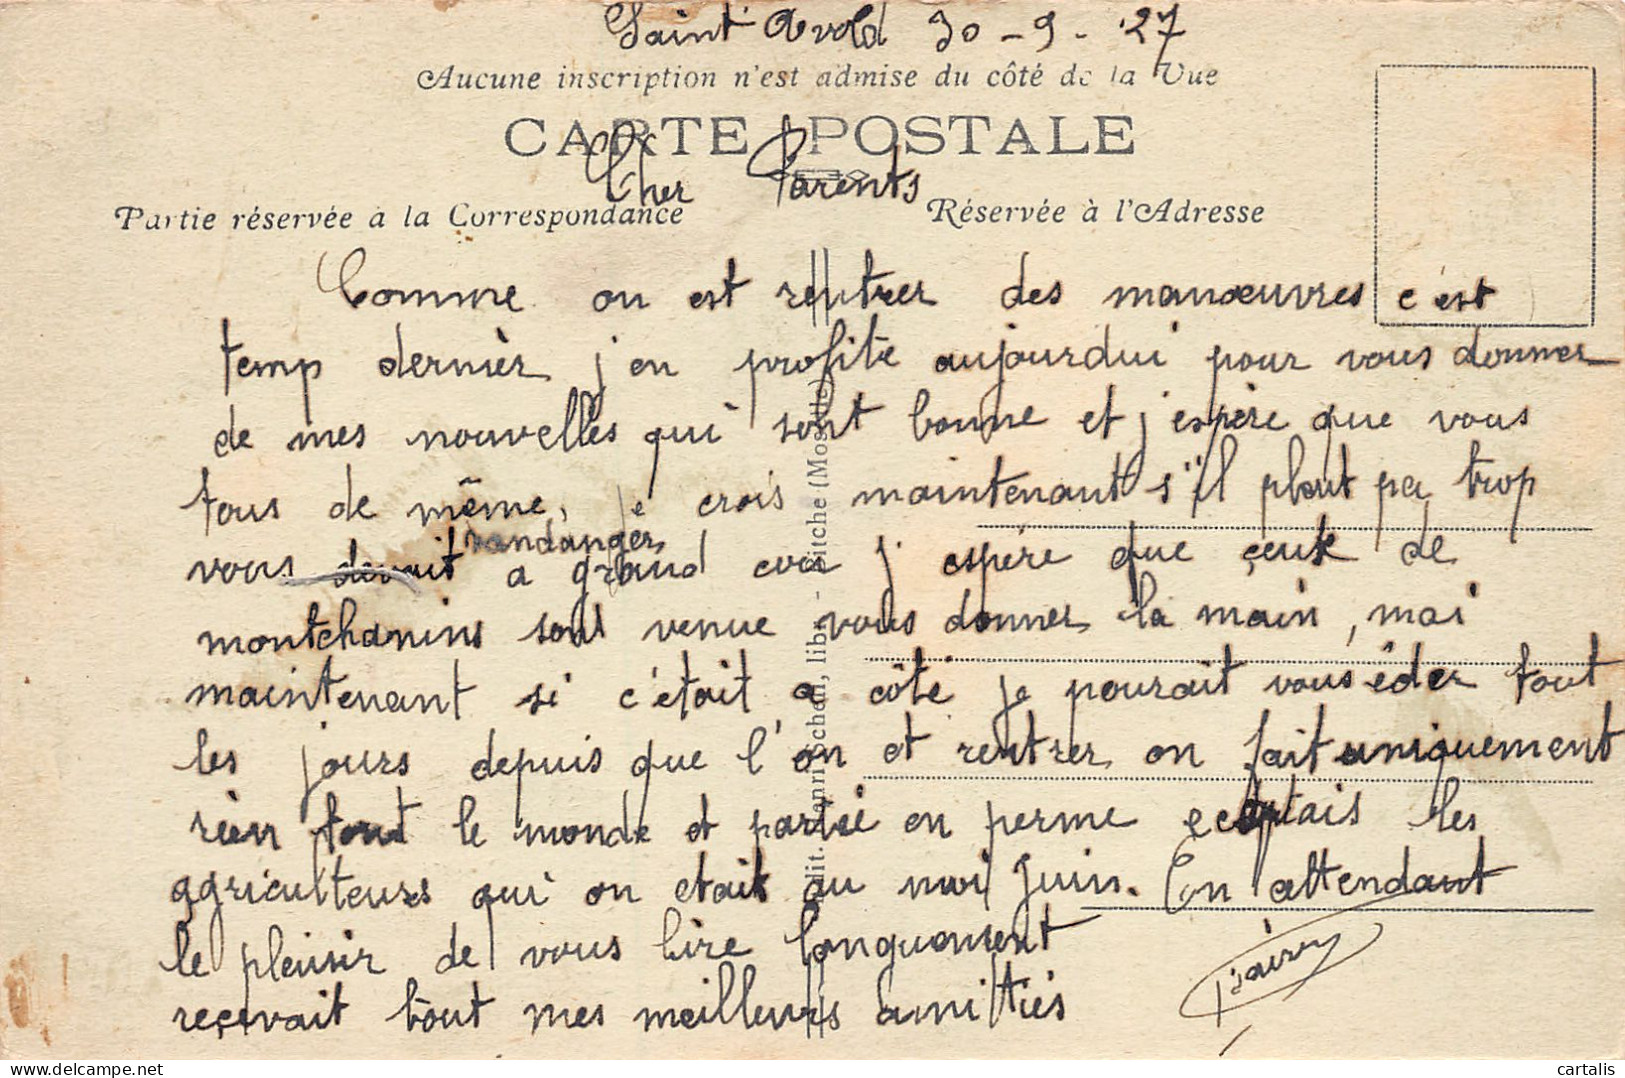 Saint Avold 30-9-27
Aucune inscription n'est admise du côté de la Vue
CARTE POSTALE
Cher Parents
Partie réservée à la Correspondance
Réservée à l'Adresse
Comme on est rentrer des manœuvres c'est
temp dernièr j'en profite aujourdui pour vous donner
de mes nouvelles qui sont bonne et j'espère que vous
tous de même, je crois maintenant s'il pleut pa trop
vous devait vandanger a grand coo j'espére que çeuse de
montchanins sont venue vous donner la main, mai
maintenant si c'était a côté je pourait vous éder tout
les jours depuis que l'on et rentrer on fait uniquement
rien tout le monde et partie en perme eceptais les
agriculteurs qui on etait au moi Juin. En attendant
le plaisir de vous lire longuement
reçevait tout mes meilleurs amitiés
Edit. Henri Pschall, libr. - Bitche (Moselle)
cartalis